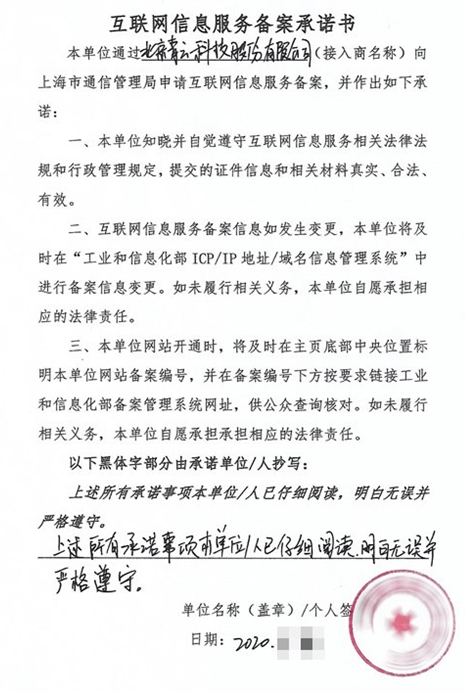 互联网信息服务备案承诺书
本单位通过北京青云科技股份有限公司(接入商名称)向
上海市通信管理局申请互联网信息服务备案，并作出如下承
诺：
一、本单位知晓并自觉遵守互联网信息服务相关法律法
规和行政管理规定，提交的证件信息和相关材料真实、合法、
有效。
二、互联网信息服务备案信息如发生变更，本单位将及
时在“工业和信息化部 ICP/IP 地址/域名信息管理系统”中
进行备案信息变更。如未履行相关义务，本单位自愿承担相
应的法律责任。
三、本单位网站开通时，将及时在主页底部中央位置标
明本单位网站备案编号，并在备案编号下方按要求链接工业
和信息化部备案管理系统网址，供公众查询核对。如未履行
相关义务，本单位自愿承担承担相应的法律责任。
以下黑体字部分由承诺单位/人抄写：
上述所有承诺事项本单位/人已仔细阅读，明白无误并
严格遵守。
上述所有承诺事项本单位/人已仔细阅读，明白无误并
严格遵守。
单位名称（盖章）/个人签
日期：2020.